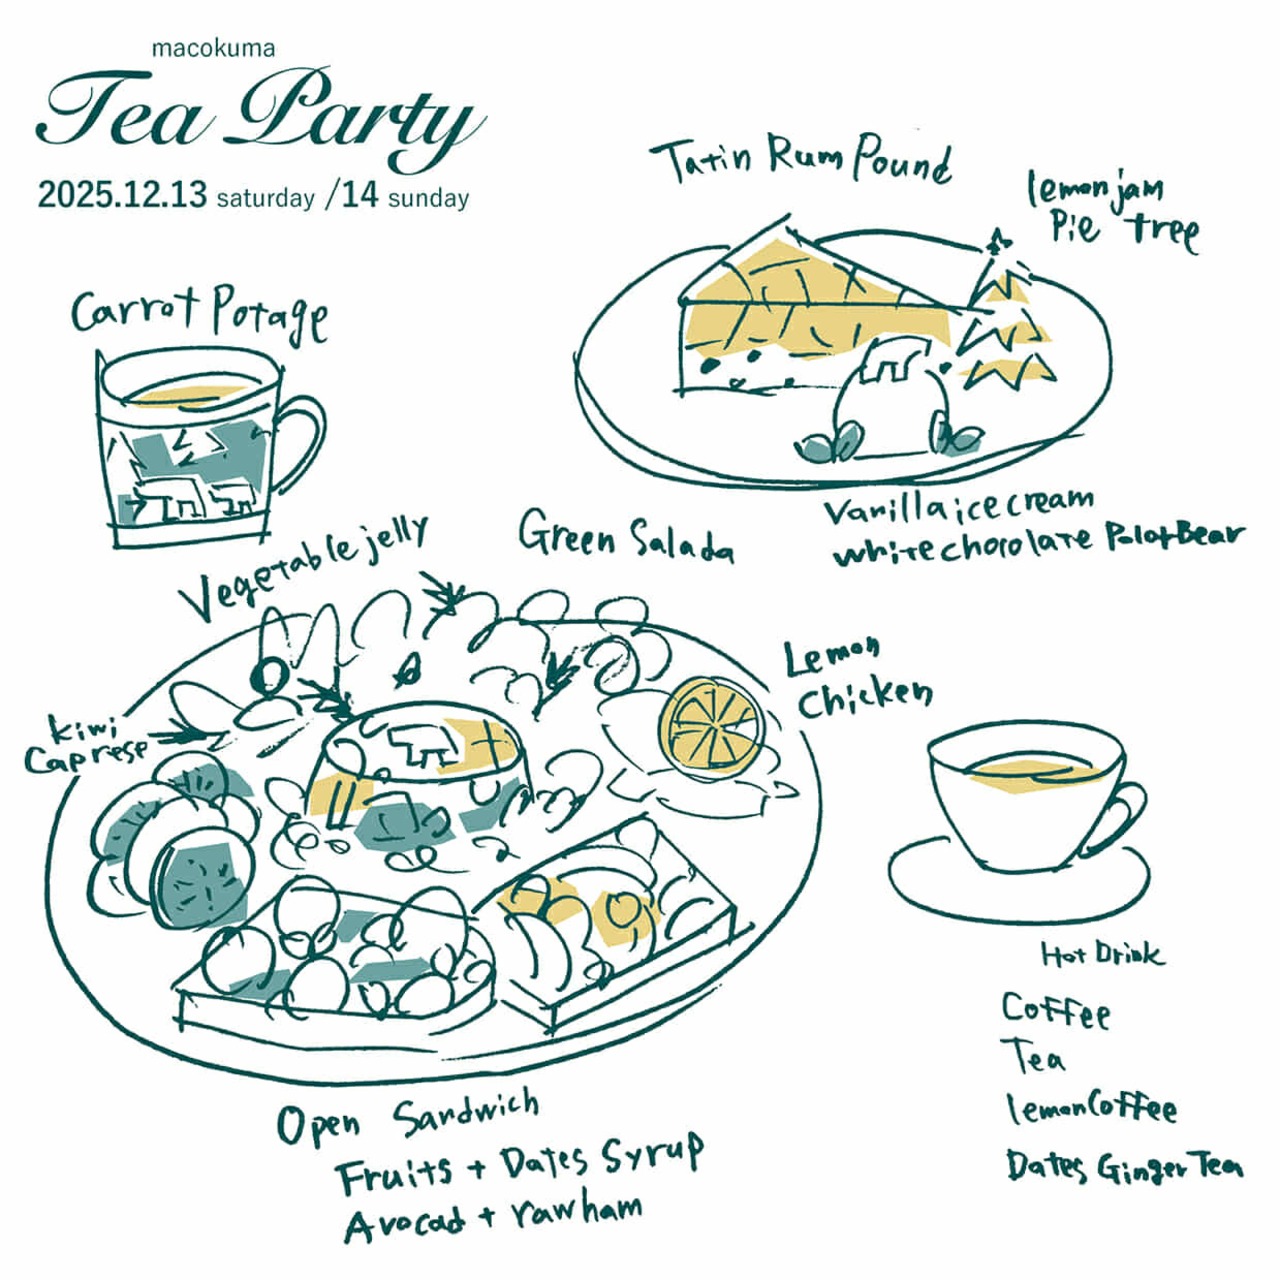 macokuma
Tea Party
2025.12.13 saturday /14 sunday
Tatin Rum Pound
lemon jam
Pie tree
Carrot Potage
Vanilla ice cream
white chocolate Polar Bear
Vegetable jelly
Green Salada
Lemon
Chicken
kiwi
Caprese
Hot Drink
Coffee
Tea
lemon Coffee
Dates Ginger Tea
Open Sandwich
Fruits + Dates Syrup
Avocad + rawham